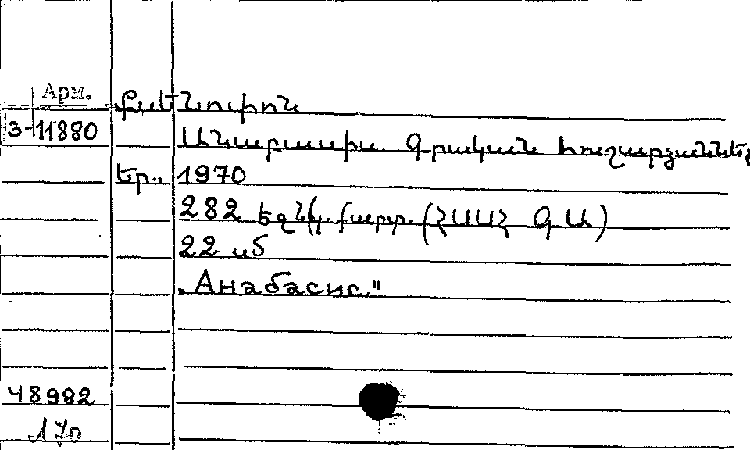 Арм.
3-11880
Քսենոփոն
Անաբասիս. Գրական հուշարձաններ
Եր., 1970
282 եզն., քարտ. (ՀՍՍՀ ԳԱ)
22 սմ
„Анабасис."
48982